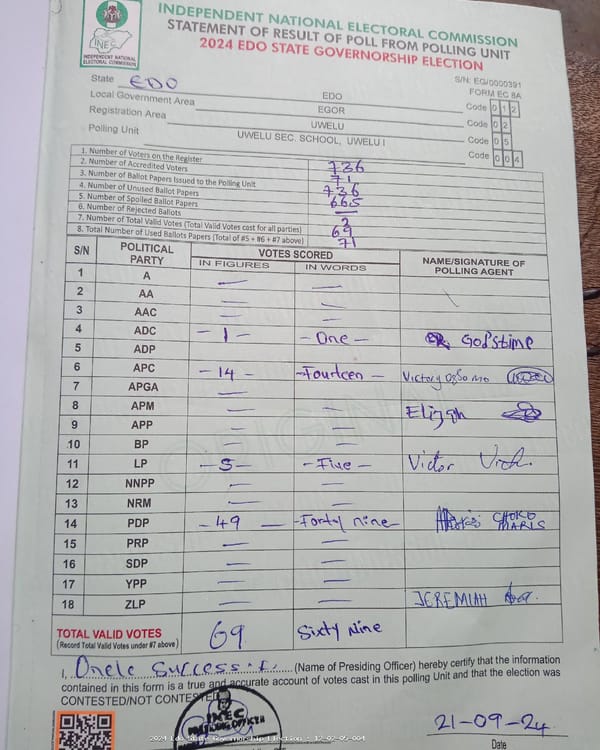 INDEPENDENT NATIONAL ELECTORAL COMMISSION
STATEMENT OF RESULT OF POLL FROM POLLING UNIT
2024 EDO STATE GOVERNORSHIP ELECTION
INEC
INDEPENDENT NATIONAL
ELECTORAL COMMISSION
S/N: EG/0000391
FORM EC 8A
State EDO
Local Government Area EDO Code 012
Registration Area EGOR Code 02
UWELU Code 05
Polling Unit UWELU SEC. SCHOOL, UWELU I Code 004
1. Number of Voters on the Register 736
2. Number of Accredited Voters 71
3. Number of Ballot Papers Issued to the Polling Unit 736
4. Number of Unused Ballot Papers 665
5. Number of Spoiled Ballot Papers —
6. Number of Rejected Ballots 2
7. Number of Total Valid Votes (Total Valid Votes cast for all parties) 69
8. Total Number of Used Ballots Papers (Total of #5 + #6 + #7 above) 71
S/N POLITICAL PARTY VOTES SCORED NAME/SIGNATURE OF POLLING AGENT
IN FIGURES IN WORDS
1 A — —
2 AA — —
3 AAC — —
4 ADC - 1 - - One - Gods time
5 ADP
6 APC - 14 - - Fourteen - Victory
7 APGA —
8 APM — — Elijah
9 APP — —
10 BP — —
11 LP - 5 - - Five - Victor
12 NNPP — —
13 NRM — —
14 PDP - 49 - - Forty nine -
15 PRP — —
16 SDP — —
17 YPP — —
18 ZLP — — JEREMIAH
TOTAL VALID VOTES 69 Sixty Nine
(Record Total Valid Votes under #7 above)
I, Success (Name of Presiding Officer) hereby certify that the information
contained in this form is a true and accurate account of votes cast in this polling Unit and that the election was
CONTESTED/NOT CONTESTED
INEC
21-09-24
Date
2024 Edo State Governorship Election - 12-02-05-004